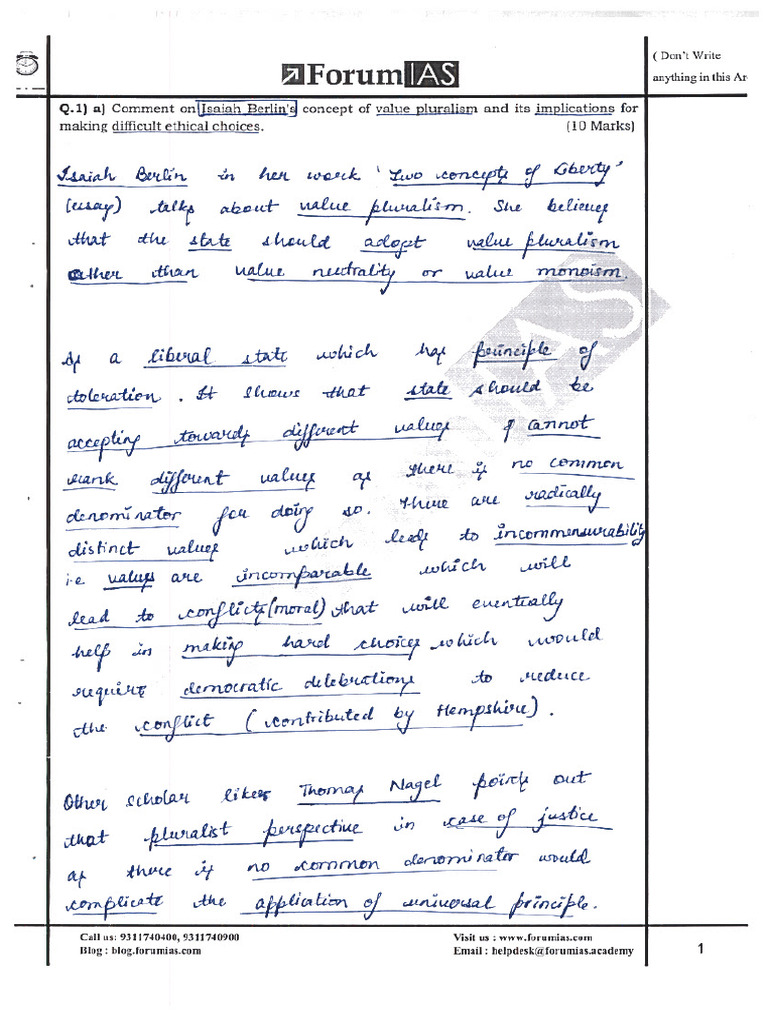 ( Don't Write
anything in this Ar
ForumIAS
Q.1) a) Comment on Isaiah Berlin's concept of value pluralism and its implications for
making difficult ethical choices. (10 Marks)
Isaiah Berlin in her work 'Two concepts of Liberty'
(essay) talks about value pluralism. She believes
that the state should adopt value pluralism
other than value neutrality or value monoism.
As a liberal state which has principle of
toleration. It shows that state should be
accepting towards different values & cannot
rank different values as there is no common
denominator for doing so. There are radically
distinct values which leads to incommensurability
i.e values are incomparable which will
lead to conflicts (moral) that will eventually
help in making hard choices which would
require democratic delebrations to reduce
the conflict (contributed by Hempshire).
Other scholar likes Thomas Nagel points out
that pluralist perspective in case of justice
as there is no common denominator would
complicate the application of universal principle.
Call us: 9311740400, 9311740900 Visit us : www.forumias.com
Blog : blog.forumias.com Email : helpdesk@forumias.academy
1